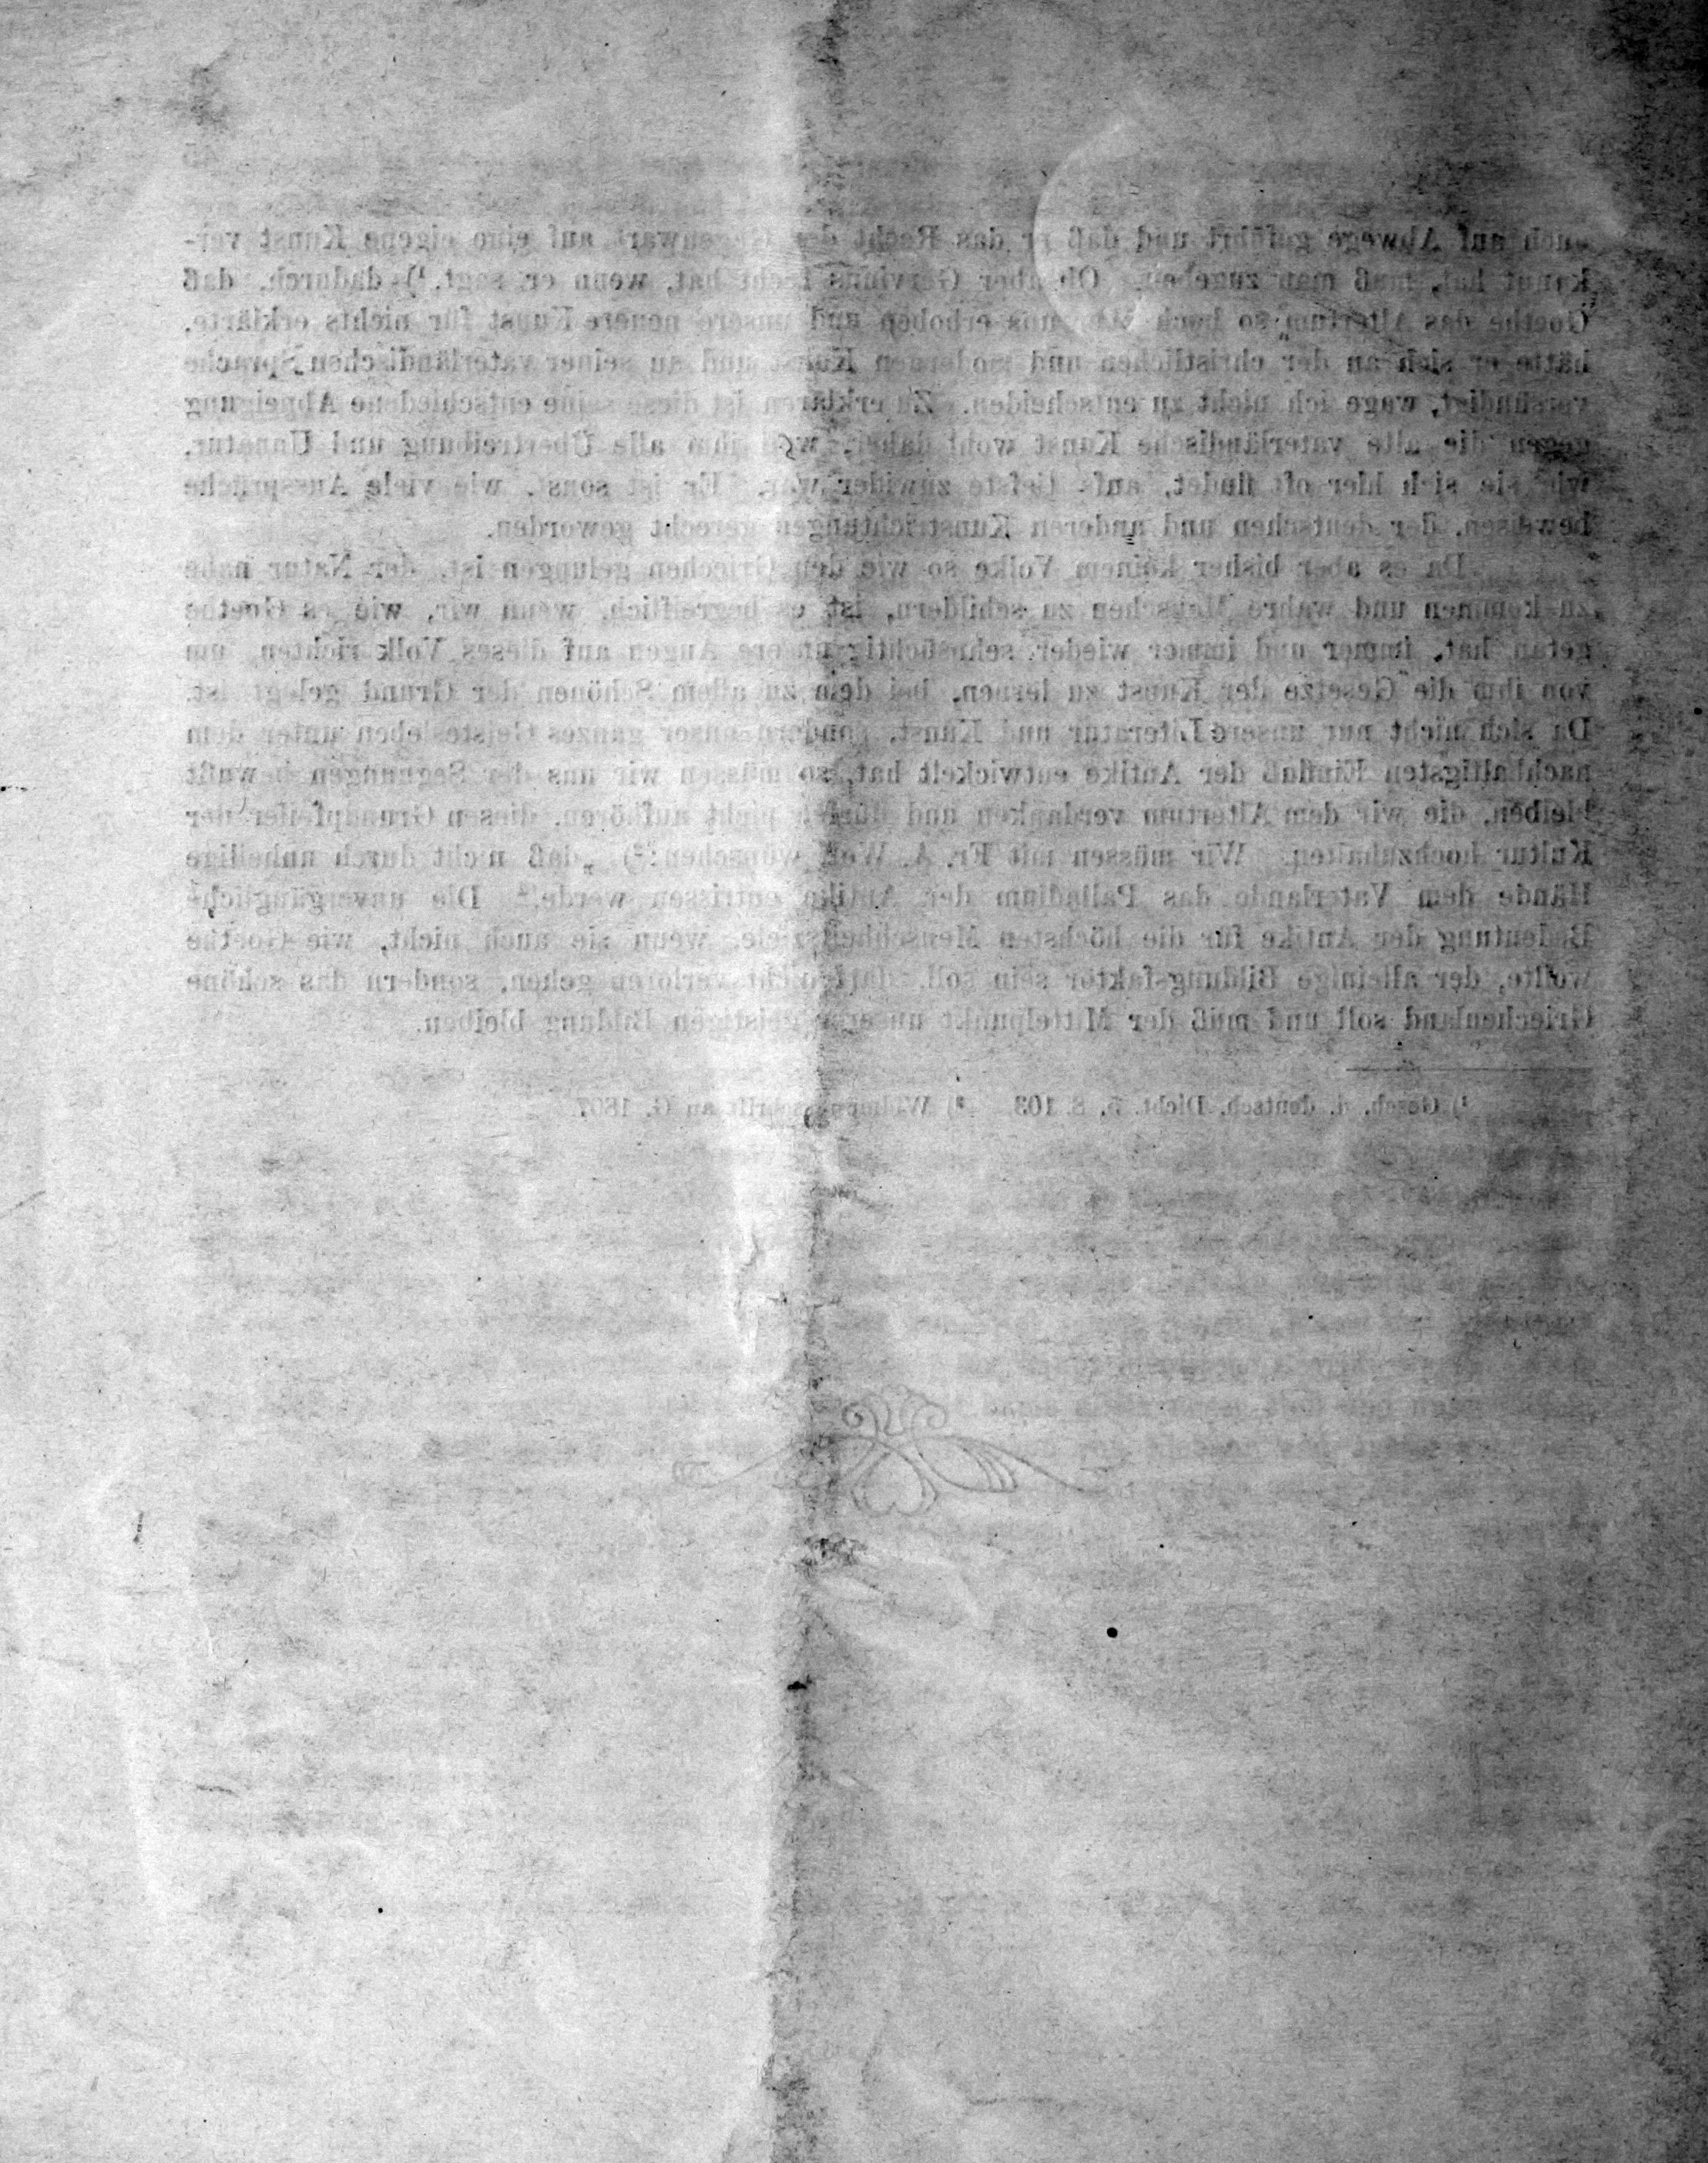 45
auch auf Abwege geführt und daß er das Recht der Gegenwart auf eine eigene Kunst ver-
kannt hat, muß man zugeben. Ob aber Gervinus recht hat, wenn er sagt,¹) dadurch, daß
Goethe das Altertum so hoch erhoben und unsere neuere Kunst für nichts erklärte,
hätte er sich an der christlichen und modernen Kunst und an seiner vaterländischen Sprache
versündigt, wage ich nicht zu entscheiden. Zu erklären ist diese seine entschiedene Abneigung
gegen die alte vaterländische Kunst wohl daher, weil ihm alle Übertreibung und Unnatur,
wie sie sich hier oft findet, aufs tiefste zuwider war. Er ist sonst, wie viele Aussprüche
beweisen, der deutschen und anderen Kunstrichtungen gerecht geworden.
Da es aber bisher keinem Volke so wie den Griechen gelungen ist, der Natur nahe
zu kommen und wahre Menschen zu schildern, ist es begreiflich, wenn wir, wie es Goethe
getan hat, immer und immer wieder sehnsüchtig unsere Augen auf dieses Volk richten, um
von ihm die Gesetze der Kunst zu lernen, bei dem zu allem Schönen der Grund gelegt ist.
Da sich nicht nur unsere Literatur und Kunst, sondern unser ganzes Geistesleben unter dem
nachhaltigsten Einfluß der Antike entwickelt hat, so müssen wir uns der Segnungen bewußt
bleiben, die wir dem Altertum verdanken und dürfen nicht aufhören, diesen Grundpfeiler der
Kultur hochzuhalten. Wir müssen mit Fr. A. Wolf wünschen:²) „daß nicht durch unheilige
Hände dem Vaterlande das Palladium der Antike entrissen werde.“ Die unvergängliche
Bedeutung der Antike für die höchsten Menschheitsziele, wenn sie auch nicht, wie Goethe
wollte, der alleinige Bildungsfaktor sein soll, darf nicht verloren gehen, sondern das schöne
Griechenland soll und muß der Mittelpunkt unserer geistigen Bildung bleiben.
¹) Gesch. d. deutsch. Dicht. 5, S. 103. ²) Widmungsschrift an G. 1807.